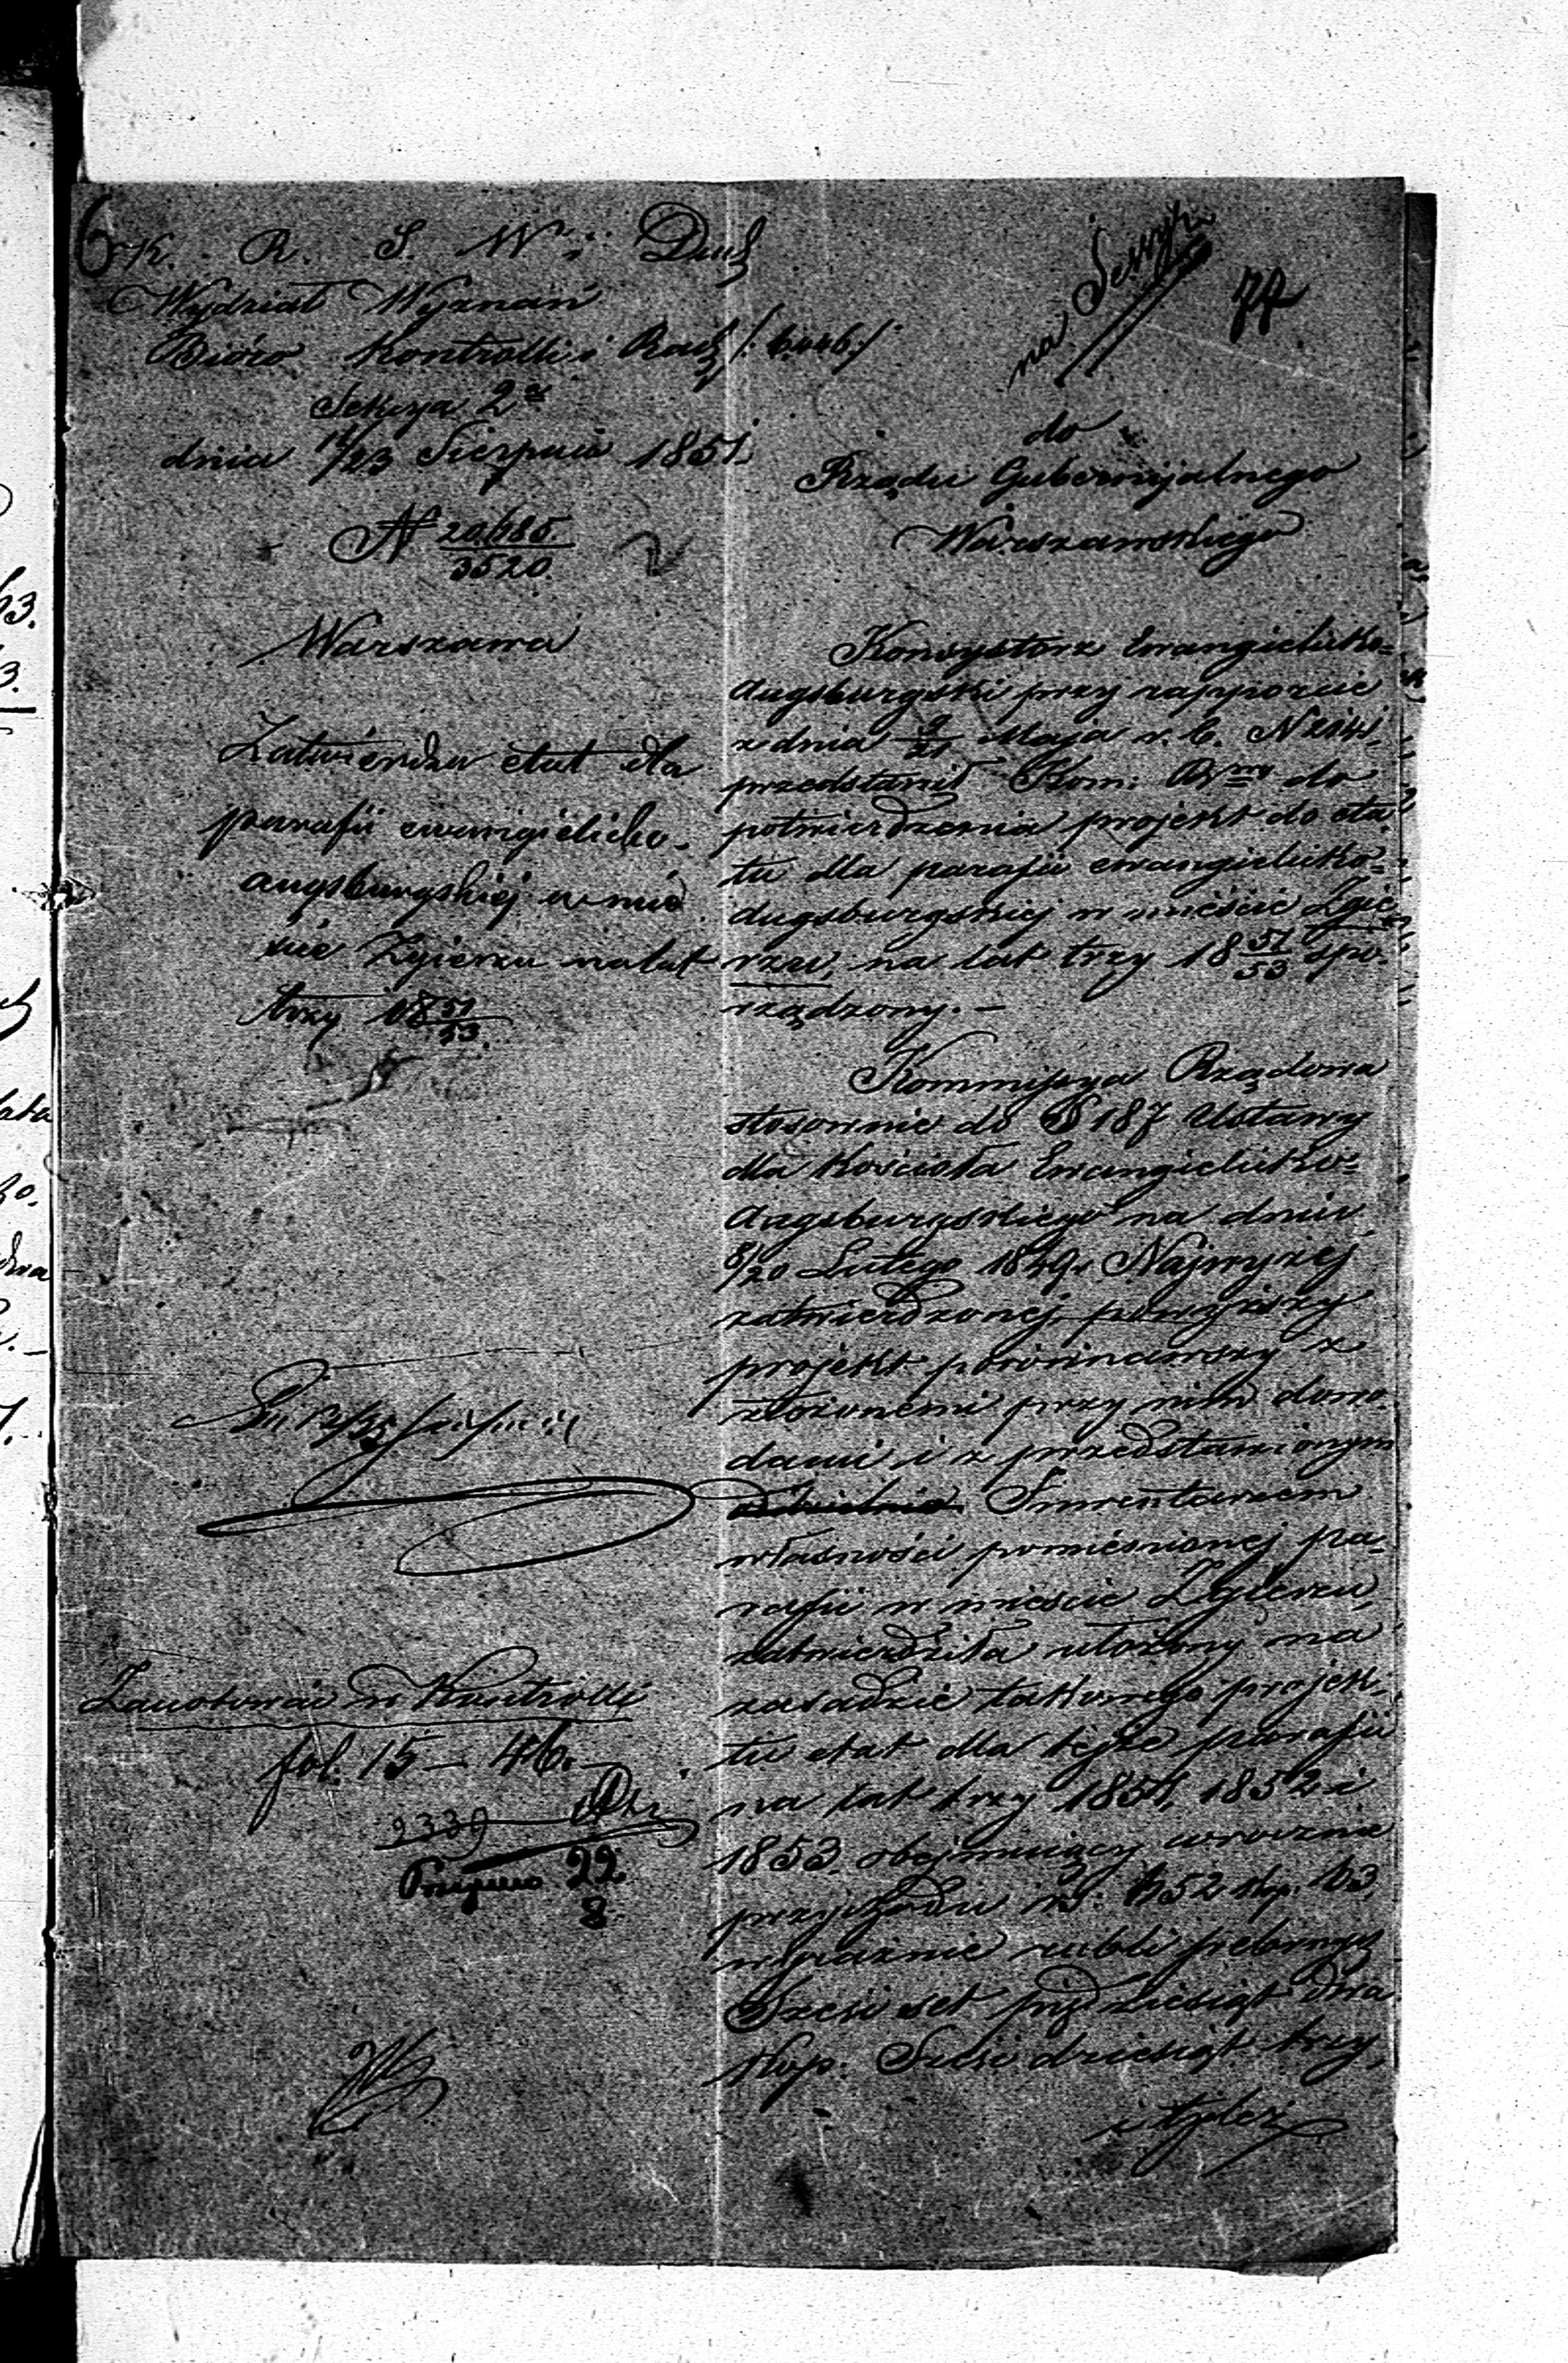 K. R. S. W. i Duch
Wydział Wyznań
Bióro Kontrolli i Rach
Sekcya 2ª
dnia 11/23 Sierpnia 1851.
N 20,185. / 3520.
Warszawa
Zatwierdza etat dla
parafii ewangielicko-
augsburgskiej w mie
ście Zgierzu na lat
trzy 18 51/53.
Zanotować w Kontrolli
fol: 15 – 46.
9339
22
8
na Sessyi
do
Rządu Gubernijalnego
Warszawskiego
Konsystorz Ewangielicko-
Augsburgski przy rapporcie
z dnia 9/21 Maja r. b. N
przedstawił Kom: Rząd do
potwierdzenia projekt do eta
tu dla parafii ewangielicko-
Augsburgskiej w mieście Zgie
rzu, na lat trzy 18 51/53 spo-
rządzony. –
Kommissya Rządowa
stosownie do § 187 Ustawy
dla Kościoła Ewangielicko-
Augsburgskiego na dniu
8/20 Lutego 1849 r. Najwyżej
zatwierdzonej, powyższy
projekt porównawszy z
złożonemi przy nim dowo-
dami i z przedstawionym
Inwentarzem
własności pomienionej pa-
rafii w mieście Zgierzu,
zatwierdziła ułożony na
zasadzie takowego projek-
tu etat dla tejże parafii
na lat trzy 1851, 1852 i
1853. obejmujący corocznie
przychodu rs: 652 kop. 63,
wyraźnie rubli srebrnych
Sześć set pięćdziesiąt dwa
kop. Sześćdziesiąt trzy,
i tyleż